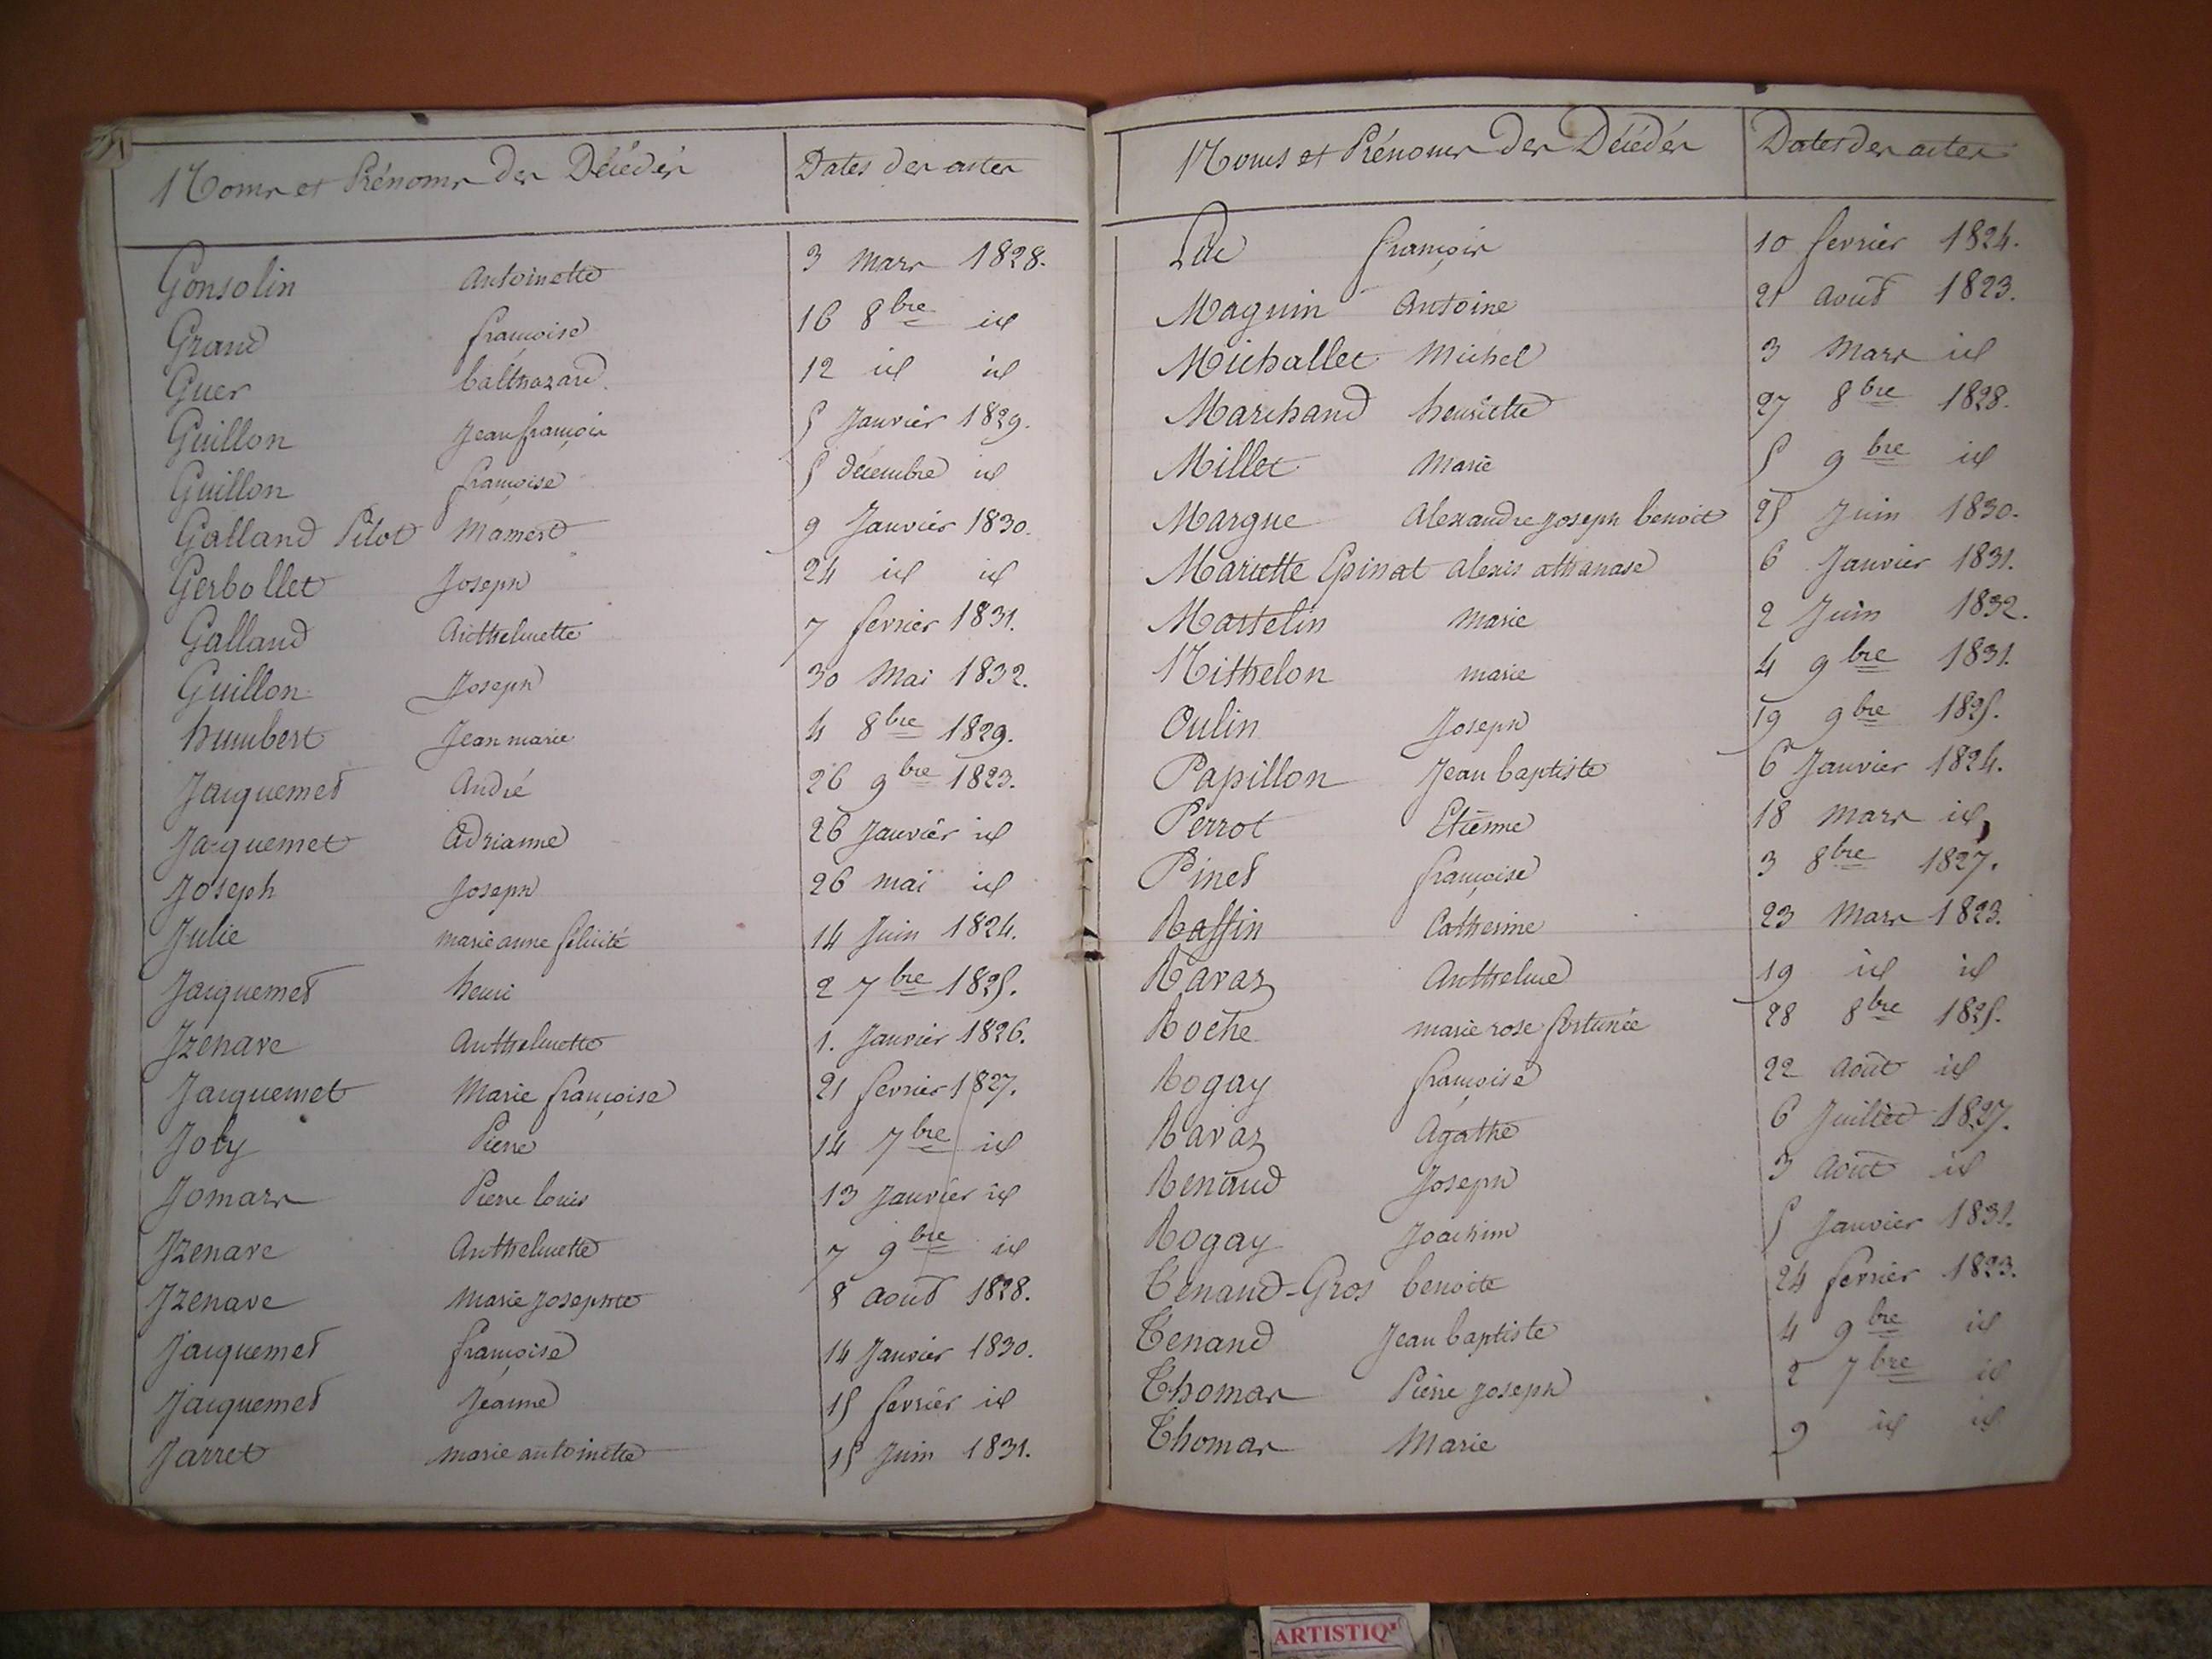 Noms et Prénoms des Décédés Dates des actes
Gonsolin Antoinette 3 Mars 1828.
Grand françoise 16 8bre id
Guer balthazard. 12 id id
Guillon Jean françois 5 Janvier 1829.
Guillon françoise 5 décembre id
Galland Pilot Mamert 9 Janvier 1830.
Gerbollet Joseph 24 id id
Galland Anthelmette 7 fevrier 1831.
Guillon Joseph 30 Mai 1832.
humbert Jean marie 4 8bre 1829.
Jacquemet André 26 9bre 1823.
Jacquemet Adrianne 26 Janvier id
Joseph Joseph 26 mai id
Julie marie anne félicité 14 Juin 1824.
Jacquemet henri 2 7bre 1825.
Jzenave Anthelmette 1. Janvier 1826.
Jacquemet Marie françoise 21 fevrier 1827.
Joly Pierre 14 7bre id
Jomars Pierre louis 13 Janvier id
Jzenave Anthelmette 7 9bre id
Jzenave Marie Josephte 8 Août 1828.
Jacquemet françoise 14 Janvier 1830.
Jacquemet Jeanne 15 fevrier id
Jarret marie antoinette 15 Juin 1831.
Noms et Prénoms des Décédés Dates des actes
Luc françois 10 fevrier 1824.
Maguin Antoine 21 Août 1823.
Michallet Michel 3 Mars id
Marchand henriette 27 8bre 1828.
Millet Marie 5 9bre id
Margue Alexandre Joseph benoit 25 Juin 1830.
Mariette Epinat Alexis athanase 6 Janvier 1831.
Martelin Marie 2 Juin 1832.
Nithelon marie 4 9bre 1831.
Oulin Joseph 19 9bre 1825.
Papillon Jean baptiste 6 Janvier 1824.
Perrot Etienne 18 Mars id
Pinet françoise 3 8bre 1827.
Raffin Catherine 23 Mars 1823.
Ravaz Anthelme 19 id id
Roche marie rose fortunée 28 8bre 1825.
Rogay françoise 22 Août id
Ravaz Agathe 6 Juillet 1827.
Renaud Joseph 3 Août id
Rogay Joachim 5 Janvier 1831.
Tenand-Gros benoite 24 fevrier 1823.
Tenand Jean baptiste 4 9bre id
Thomas Pierre Joseph 2 7bre id
Thomas Marie 9 id id
ARTISTIQ